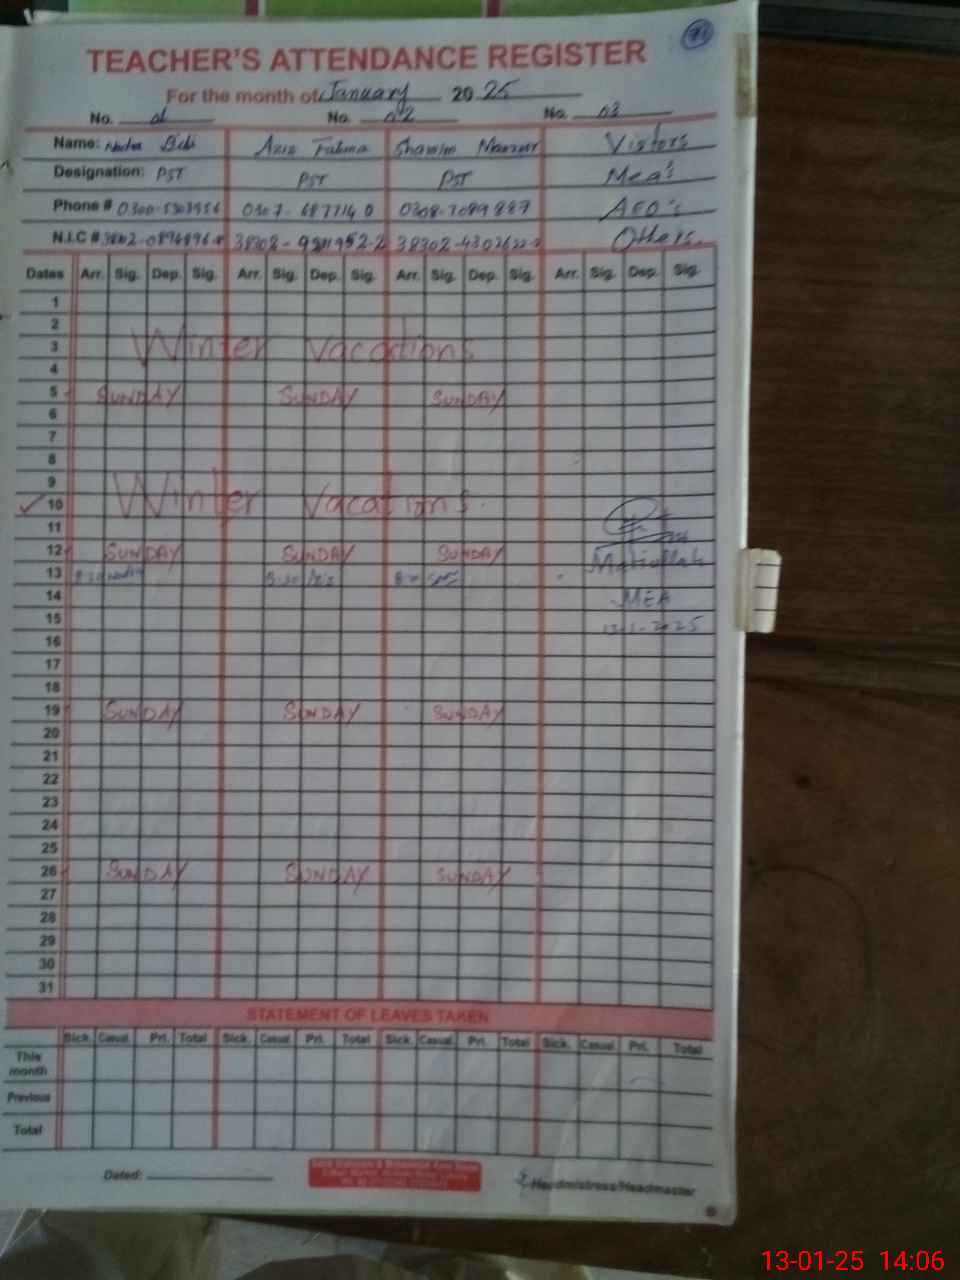 71
TEACHER'S ATTENDANCE REGISTER
For the month of January 2025
No. 01 No. 02 No. 03
Name: Bibi Aziz Fatima Shamim Manzoor Visitors
Designation: PST PST PST Mea's
Phone # 0300-5303956 0307-6877140 0308-7089887 AEO's
N.I.C # 38302- 38302- 38302- Others.
Dates Arr. Sig. Dep. Sig. Arr. Sig. Dep. Sig. Arr. Sig. Dep. Sig. Arr. Sig. Dep. Sig.
1
2
3 Winter Vacations
4
5 SUNDAY SUNDAY SUNDAY
6
7
8
9
10 Winter Vacations.
11
12 SUNDAY SUNDAY SUNDAY
13 Matiullah
14 MEA
15 13-1-2025
16
17
18
19 SUNDAY SUNDAY SUNDAY
20
21
22
23
24
25
26 SUNDAY SUNDAY SUNDAY
27
28
29
30
31
STATEMENT OF LEAVES TAKEN
Sick. Casual. Pri. Total Sick. Casual. Pri. Total Sick. Casual. Pri. Total Sick. Casual. Pri. Total
This month
Previous
Total
Dated: Headmistress/Headmaster
13-01-25 14:06